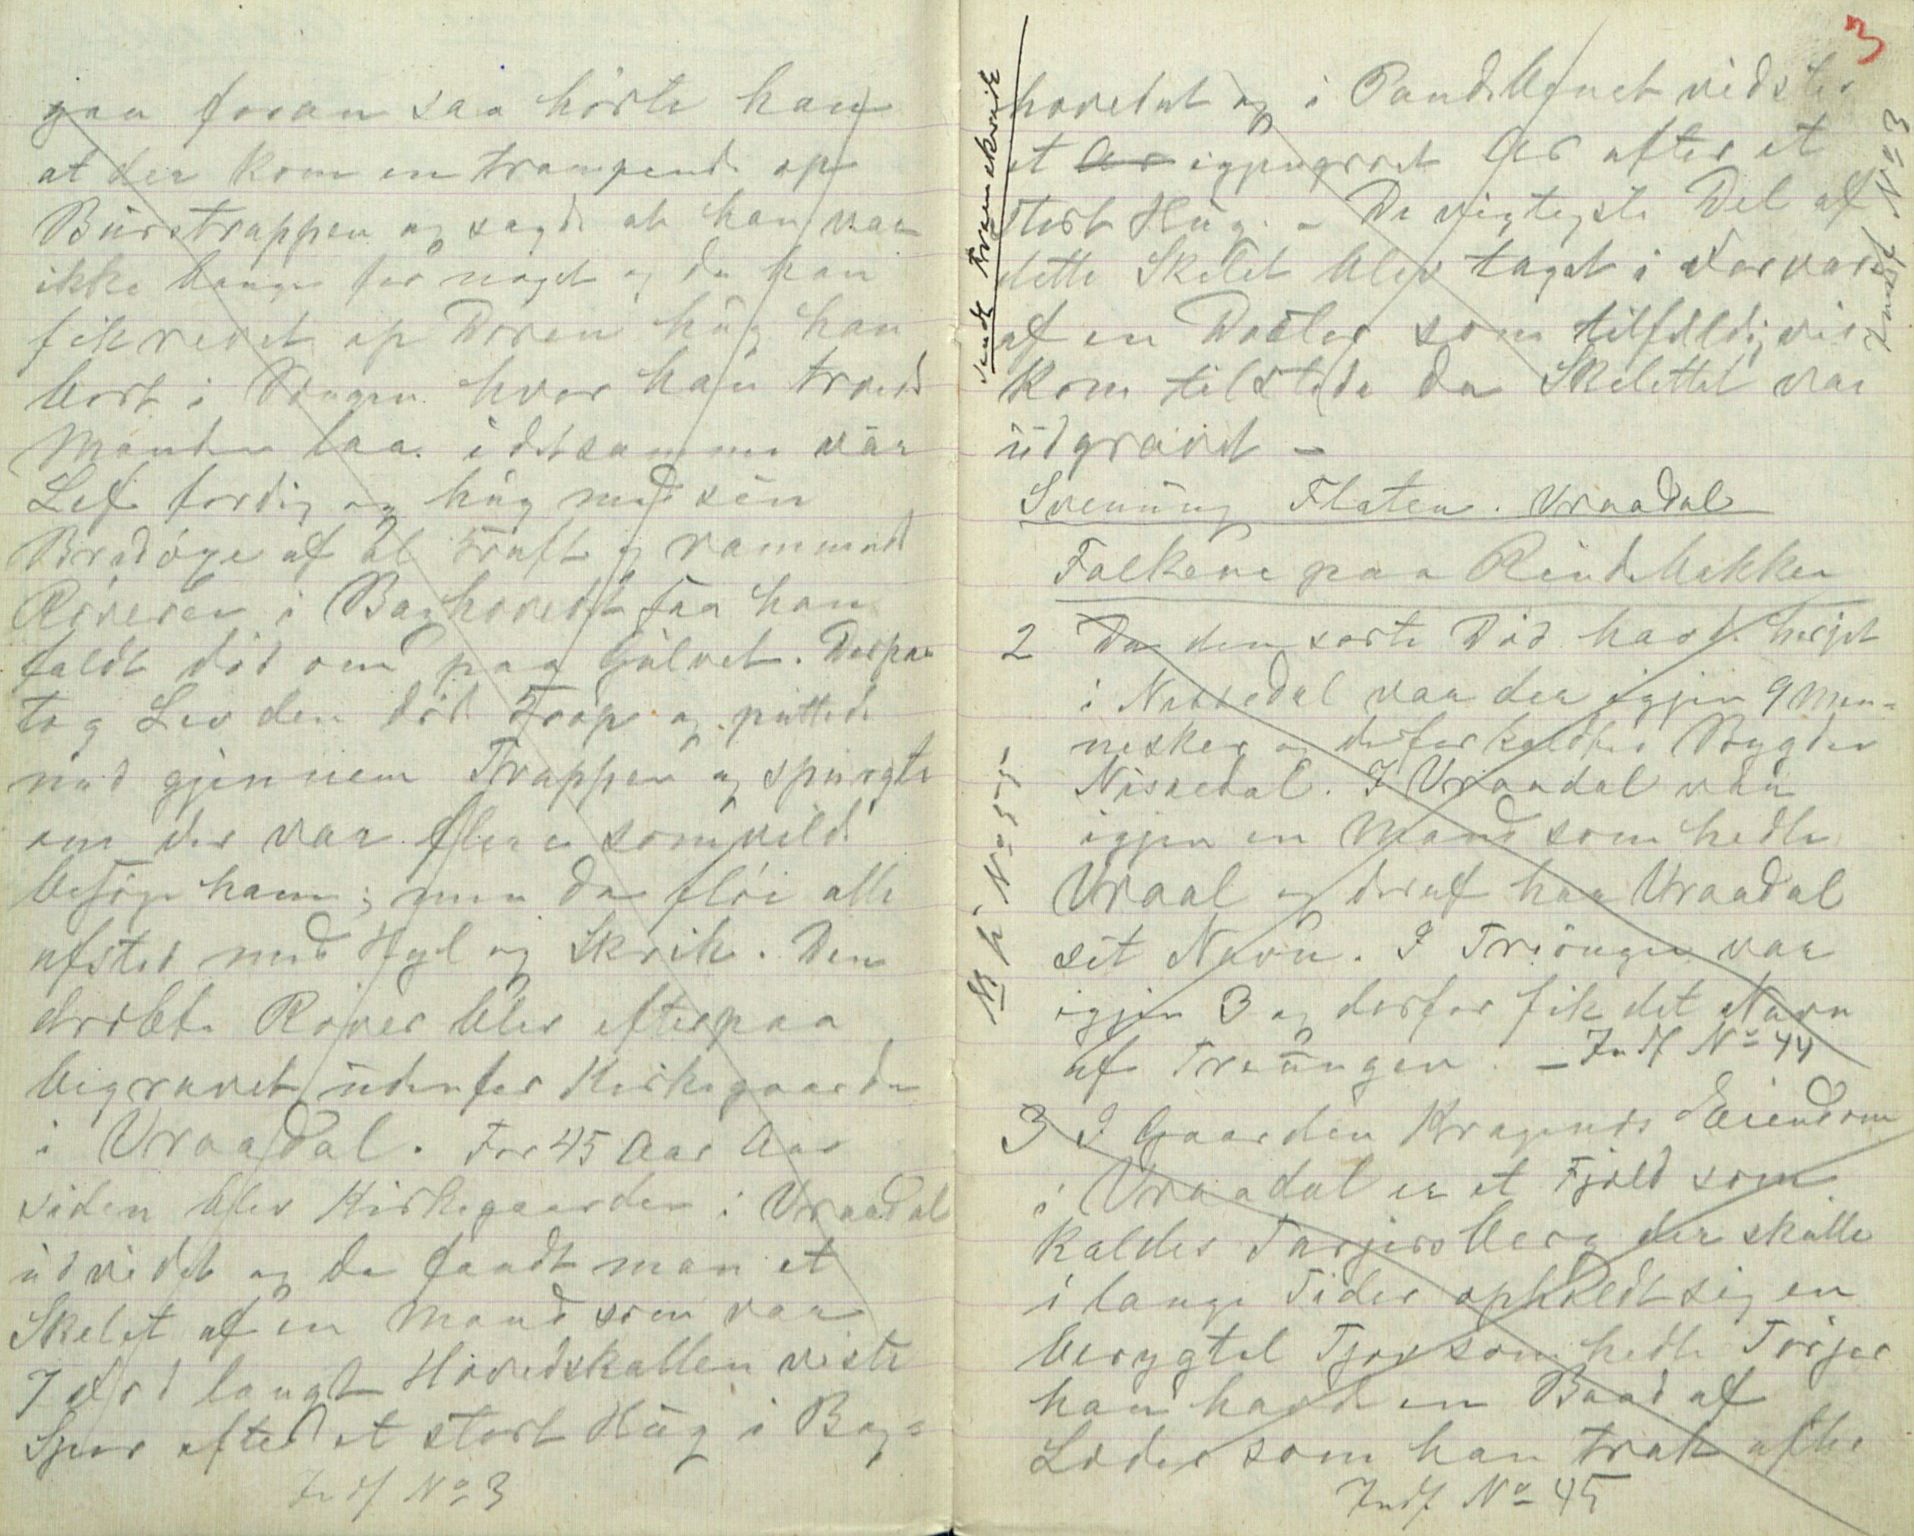 gaa foran saa hørte han
at der kom en trampende op
Burstrappen og sagde at han var
ikke bange for noget og da han
fik revet op Døren hug han
bort i Sengen hvor han troede
Manden laa. i detsamme var
Lef færdig og hug med sin
Bredøxe af al Kraft og rammede
Røveren i Baghovedet saa han
faldt død om paa Gulvet. Derpaa
tog Lev den døde Krop og puttede
ned gjennem Trappen og spurgte
om der var flere som vilde
besøge ham; men da fløi alle
afsted med Hyl og Skrik. Den
dræbte Røver blev efterpaa
begravet udenfor Kirkegaarden
i Vraadal. For 45 Aar
siden blev Kirkegaarden i Vraadal
udvidet og da fandt man et
Skelet af en Mand som var
7 langt Hovedskallen viste
Spor efter et stort Hug i Bag=
Indf No 3
3
hovedet og i Pandebenet vidstes
et Ar igjengroet Ar efter et
stort Hug. - De vigtigste Del af
dette Skelet blev taget i Forvaring
af en Doctor som tilfældigvis
kom tilstede da Skelettet var
udgravet -
Svenung Flaten. Vraadal
Folkene paa Rindebakken
2 Da den sorte Død havde herjet
i Nissedal var der igjen 9 Men=
nesker og derfor kaldtes Bygden
Nissedal. I Vraadal var
igjen en Mand som hedte
Vraal og deraf har Vraadal
sit Navn. I Treungen var
igjen 3 og derfor fik det Navn
af Treungen. - Indf No 44
3 I Gaarden Kragenes Eiendom
i Vraadal er et Fjeld som
kaldes Tarjersberg der skulle
i lange Tider opholdt sig en
berygtet Tjov som hedte Torjer
han havde en Baad af
Læder som han trak efter
Indf No 45
Sendt
Indf No 3
No 55